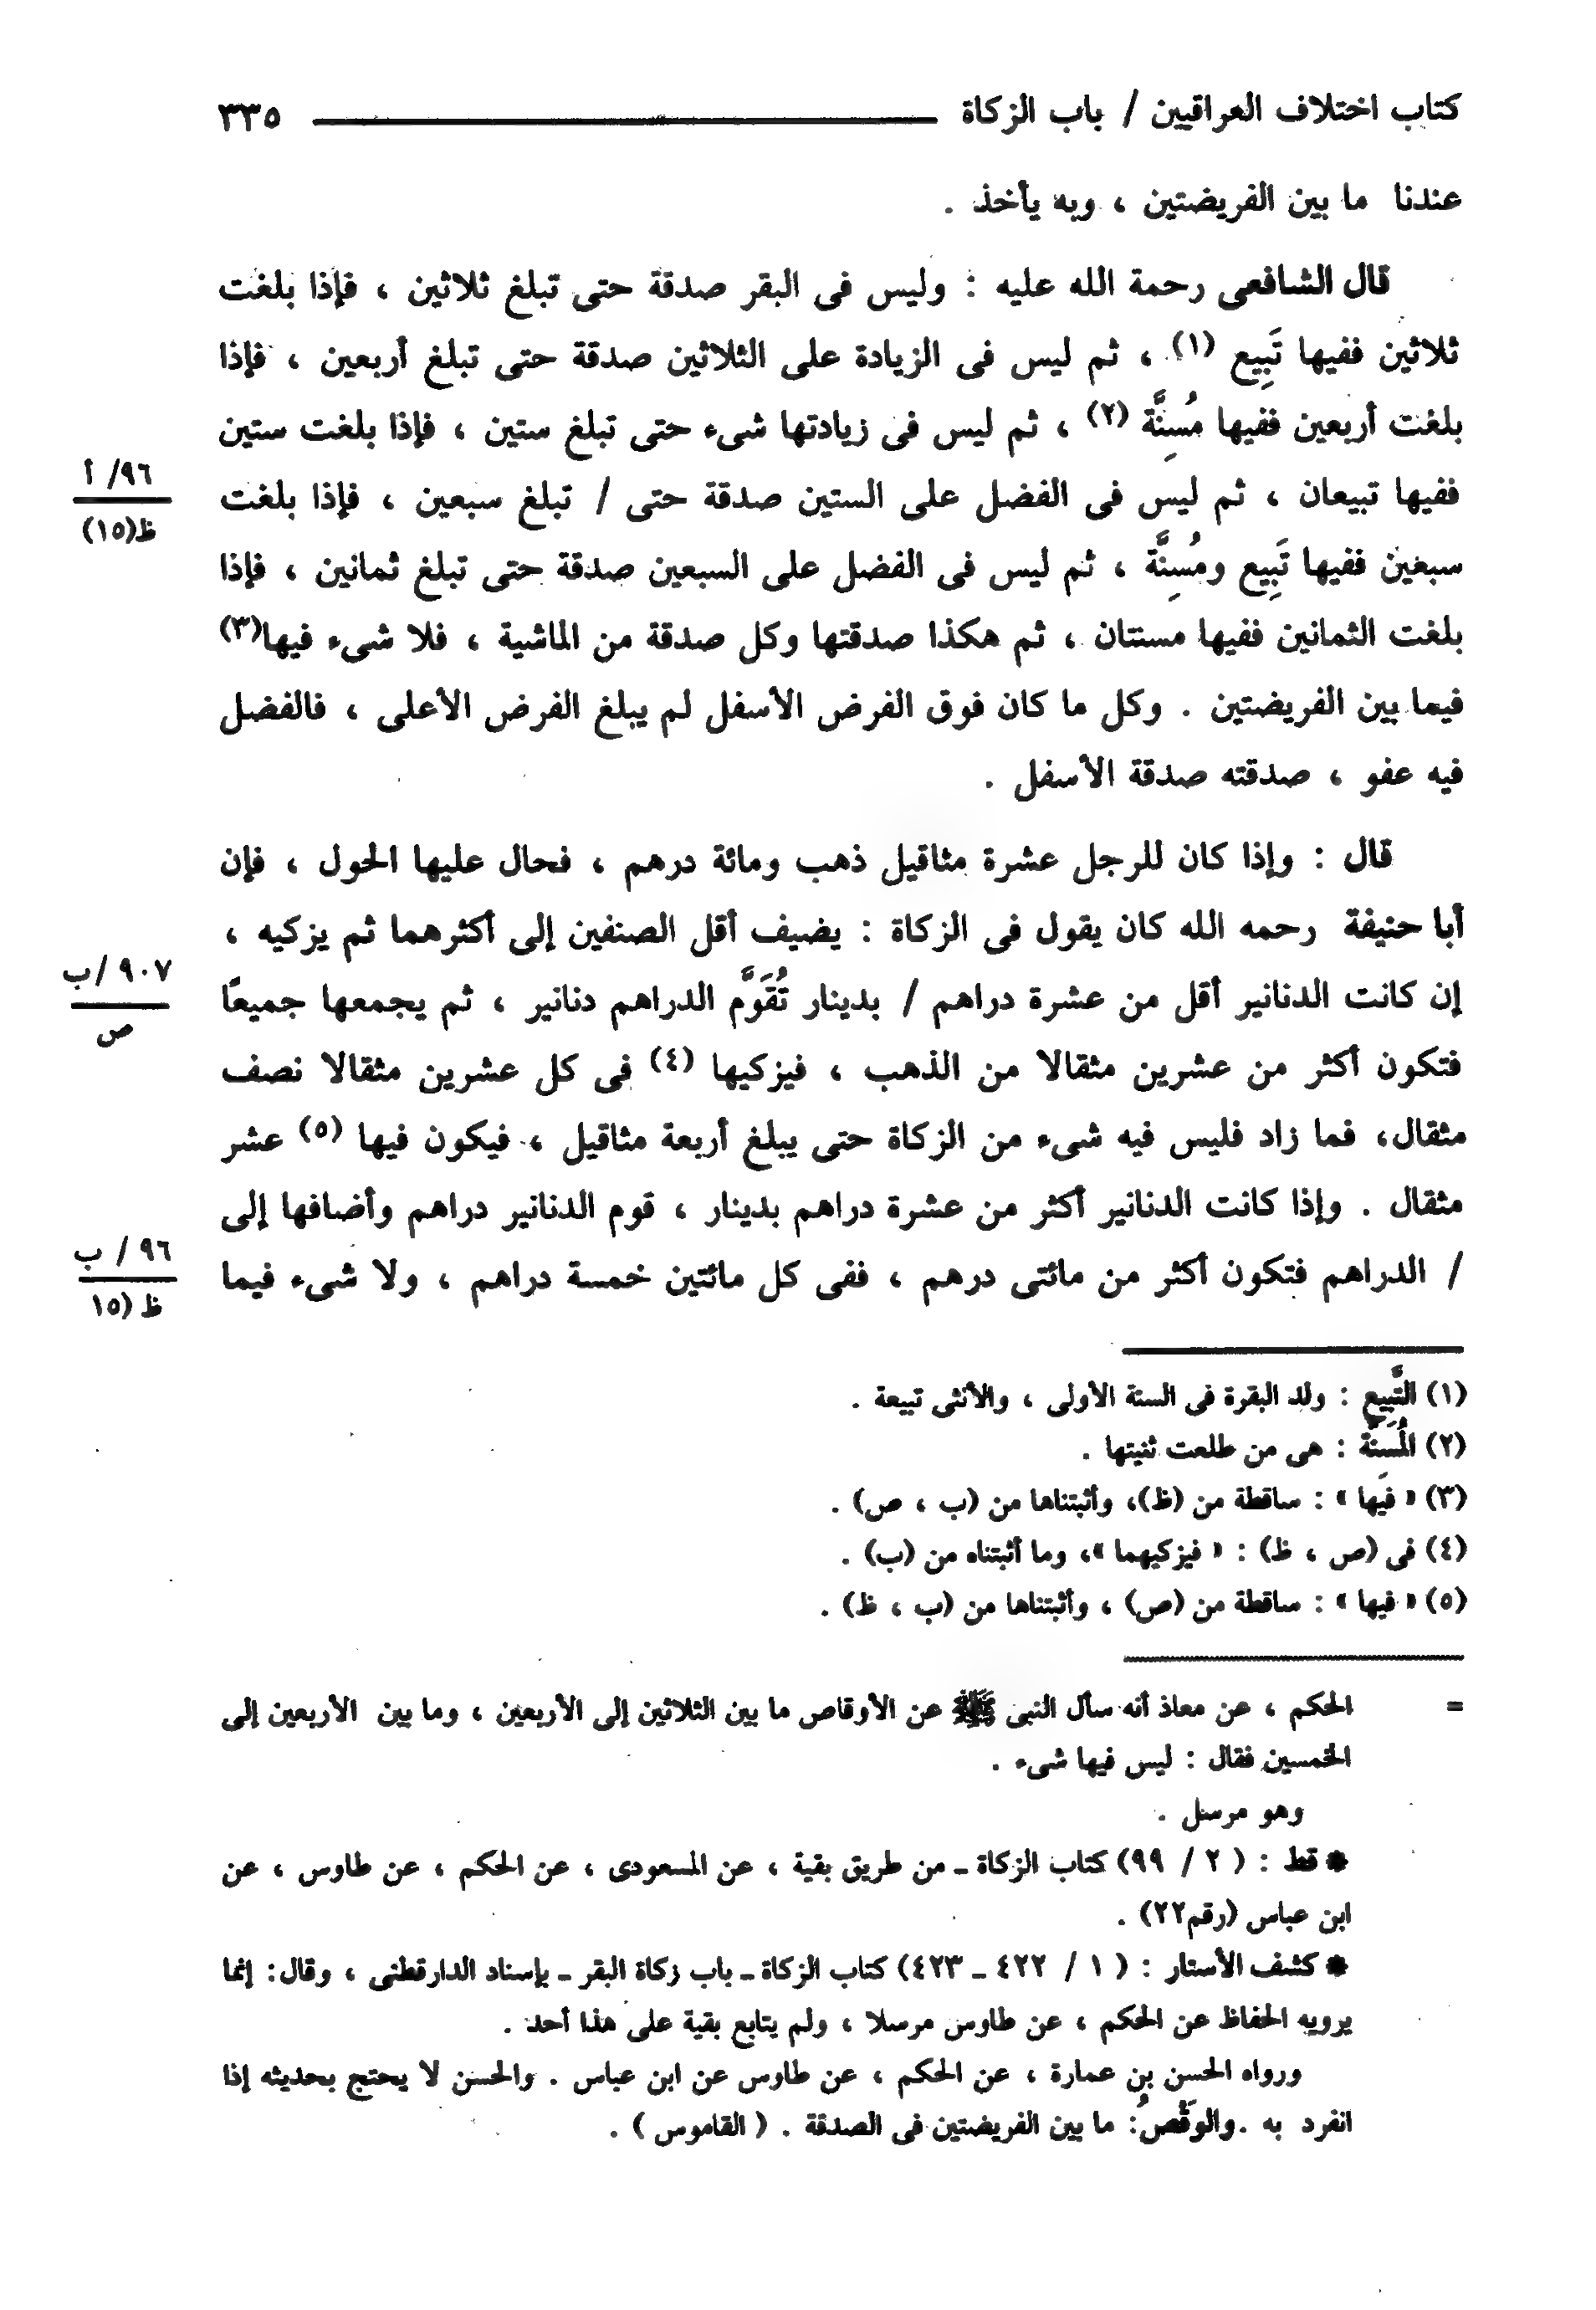 كتاب اختلاف العراقيين / باب الزكاة ٣٣٥
عندنا ما بين الفريضتين ، وبه يأخذ .
قال الشافعى رحمة الله عليه : وليس فى البقر صدقة حتى تبلغ ثلاثين ، فإذا بلغت
ثلاثين ففيها تَبِيع (١) ، ثم ليس فى الزيادة على الثلاثين صدقة حتى تبلغ أربعين ، فإذا
بلغت أربعين ففيها مُسِنَّة (٢) ، ثم ليس فى زيادتها شىء حتى تبلغ ستين ، فإذا بلغت ستين
ففيها تبيعان ، ثم ليس فى الفضل على الستين صدقة حتى / تبلغ سبعين ، فإذا بلغت
٩٦/ أ
ظ(١٥)
سبعين ففيها تَبِيع ومُسِنَّة ، ثم ليس فى الفضل على السبعين صدقة حتى تبلغ ثمانين ، فإذا
بلغت الثمانين ففيها مسنتان ، ثم هكذا صدقتها وكل صدقة من الماشية ، فلا شىء فيها(٣)
فيما بين الفريضتين . وكل ما كان فوق الفرض الأسفل لم يبلغ الفرض الأعلى ، فالفضل
فيه عفو ، صدقته صدقة الأسفل .
قال : وإذا كان للرجل عشرة مثاقيل ذهب ومائة درهم ، فحال عليها الحول ، فإن
أبا حنيفة رحمه الله كان يقول فى الزكاة : يضيف أقل الصنفين إلى أكثرهما ثم يزكيه ،
٩٠٧ /ب
ص
إن كانت الدنانير أقل من عشرة دراهم / بدينار تُقَوَّم الدراهم دنانير ، ثم يجمعها جميعًا
فتكون أكثر من عشرين مثقالا من الذهب ، فيزكيها (٤) فى كل عشرين مثقالا نصف
مثقال، فما زاد فليس فيه شىء من الزكاة حتى يبلغ أربعة مثاقيل ، فيكون فيها (٥) عشر
مثقال . وإذا كانت الدنانير أكثر من عشرة دراهم بدينار ، قوم الدنانير دراهم وأضافها إلى
٩٦ / ب
ظ (١٥
/ الدراهم فتكون أكثر من مائتى درهم ، ففى كل مائتين خمسة دراهم ، ولا شىء فيما
(١) التَّبِيع : ولد البقرة فى السنة الأولى ، والأنثى تبيعة .
(٢) المُسِنَّة : هى من طلعت ثنيتها .
(٣) « فيها » : ساقطة من (ظ)، وأثبتناها من (ب ، ص) .
(٤) فى (ص ، ظ) : « فيزكيهما »، وما أثبتناه من (ب) .
(٥) « فيها » : ساقطة من (ص) ، وأثبتناها من (ب ، ظ) .
= الحكم ، عن معاذ أنه سأل النبى ﷺ عن الأوقاص ما بين الثلاثين إلى الأربعين ، وما بين الأربعين إلى
الخمسين فقال : ليس فيها شىء .
وهو مرسل .
* قط : ( ٢ / ٩٩) كتاب الزكاة ـ من طريق بقية ، عن المسعودى ، عن الحكم ، عن طاوس ، عن
ابن عباس (رقم٢٢) .
* كشف الأستار : ( ١ / ٤٢٢ ـ ٤٢٣) كتاب الزكاة ـ باب زكاة البقر ـ بإسناد الدارقطنى ، وقال: إنما
يرويه الحفاظ عن الحكم ، عن طاوس مرسلا ، ولم يتابع بقية على هذا أحد .
ورواه الحسن بن عمارة ، عن الحكم ، عن طاوس عن ابن عباس . والحسن لا يحتج بحديثه إذا
انفرد به .والوَقْصُ: ما بين الفريضتين فى الصدقة . ( القاموس ) .